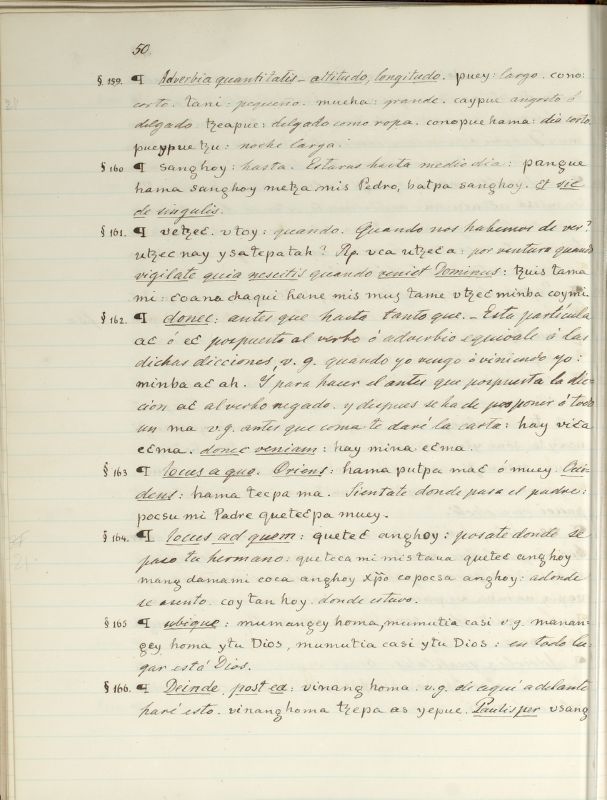 50
§ 159. ¶ Adverbia quantitatis – altitudo, longitudo. puey: largo. cono:
corto. tani: pequeno. mucha: grande. caypue angosto ó
delgado. tzeapue: delgado como ropa. conopue hama: dia corto,
pueypue tzu: noche larga.
§ 160 ¶ sanghoy: hasta. Estaras hasta medio dia: pangue
hama sanghoy metza mis Pedro, batpa sanghoy. et sic
de singulis.
§ 161. ¶ vetzec. vtoy: quando. Quando nos habemos de ver?
utzec nay ysatepatah? Rp. vca utzeca: por ventura quando
vigilate quia nescitis quando veniet Dominus: tzuis tama
mi: coana chaqui hane mis muy tame vtzec minba coymi
§ 162. ¶ donec: antes que hasta tanto que. – Esta particula
ac ó ec pospuesto al verbo ó adverbio equivale á las
dichas dicciones, v. g. quando yo vengo ó viniendo yo:
minba ac ah. Y para hacer el antes que pospuesta la dic-
cion ac al verbo negado. y despues se ha de posponer á todo
un ma v.g. antes que coma te daré la carta: hay vica
ecma. donec veniam: hay mina ecma.
§ 163 ¶ locus a quo. Oriens: hama putpa mac ó muey. Occi-
dens: hama tecpa ma. Sientate donde pasa el padre:
pocsu mi Padre quetecpa muey.
§ 164. ¶ locus ad quem: quetec anghoy: posate donde se
paso tu hermano: queteca mi mis tava quetec anghoy
mang damami coca anghoy xp̃o co pocsa anghoy: adonde
se asento. coy tan hoy. donde estuvo.
§ 165 ¶ ubique: mumangey homa, mumutia casi v.g. manan-
gey homa ytu Dios, mumutia casi ytu Dios: en todo lu-
gar está Dios.
§ 166. ¶ Deinde, post ea: vinang homa. v.g. de aqui adelante
haré esto. vinang homa tzepa as yepue. Paulisper vsang